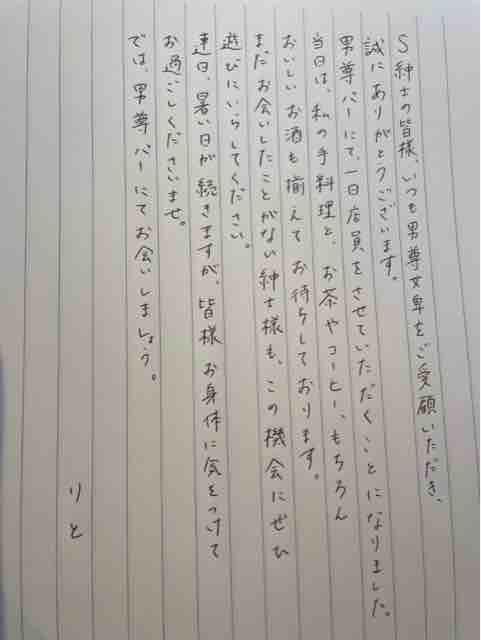 S紳士の皆様、いつも男尊女卑をご愛顧いただき、
誠にありがとうございます。
男尊バーにて、一日店員をさせていただくことになりました。
当日は、私の手料理と、お茶やコーヒー、もちろん
おいしいお酒も揃えてお待ちしております。
まだお会いしたことがない紳士様も、この機会にぜひ
遊びにいらしてください。
連日、暑い日が続きますが、皆様お身体に気をつけて
お過ごしくださいませ。
では、男尊バーにてお会いしましょう。
りと